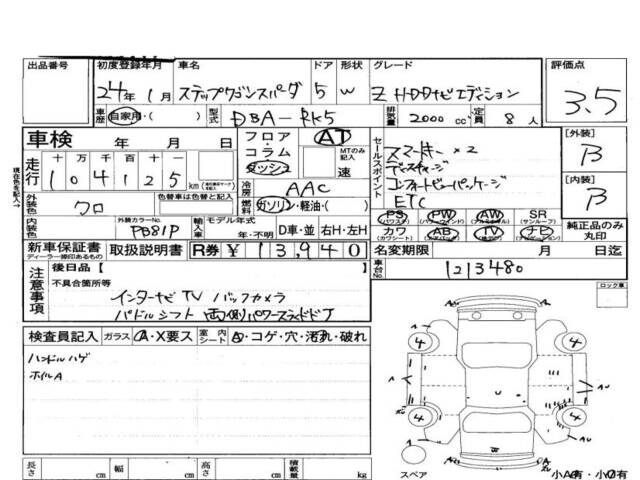 出品番号 初度登録年月 車名 ドア 形状 グレード 評価点
24年 1月 ステップワゴンスパーダ 5 W Z HDDナビエディション 3.5
車歴 自家用・( ) 型式 DBA-RK5 排気量 2000 cc 定員 8 人
車検 年 月 日 フロア・コラム ダッシュ AT MTのみ記入 速
走行 十 万 千 百 十 一
104125 km
セールスポイント
スマートキー ×2
ディスチャージ
コンフォートビューパッケージ
ETC
[外装] B
[内装] B
冷房 AAC
外装色 クロ 色替車は色替と記入 燃料 ガソリン・軽油・( )
PS PW AW SR
(パワステ) (パワーウインド) (アルミホイル) (サンルーフ)
カワ AB TV ナビ
(カワシート) (エアバック) (テレビ) (ナビゲーション)
純正品のみ丸印
内装色 外装カラーNo. PB81P 輸入車 モデル年式 年・不明 D車・並 右H・左H
新車保証書 ディーラー捺印あるもの 取扱説明書 R券 ¥ 13,940
名変期限 月 日迄
注意事項 後日品 [ ]
車台No. 1213480
不具合箇所等
インターナビ TV バックカメラ
パドルシフト 両側パワースライドドア
ロック車
検査員記入 ガラス A・X要ス 室内シート A・コゲ・穴・汚れ・破れ
ハンドルハゲ
ホイルA
4 4
4 4
U
スペア 小A有・小U有
長さ cm 幅 cm 高さ cm 積載量 kg